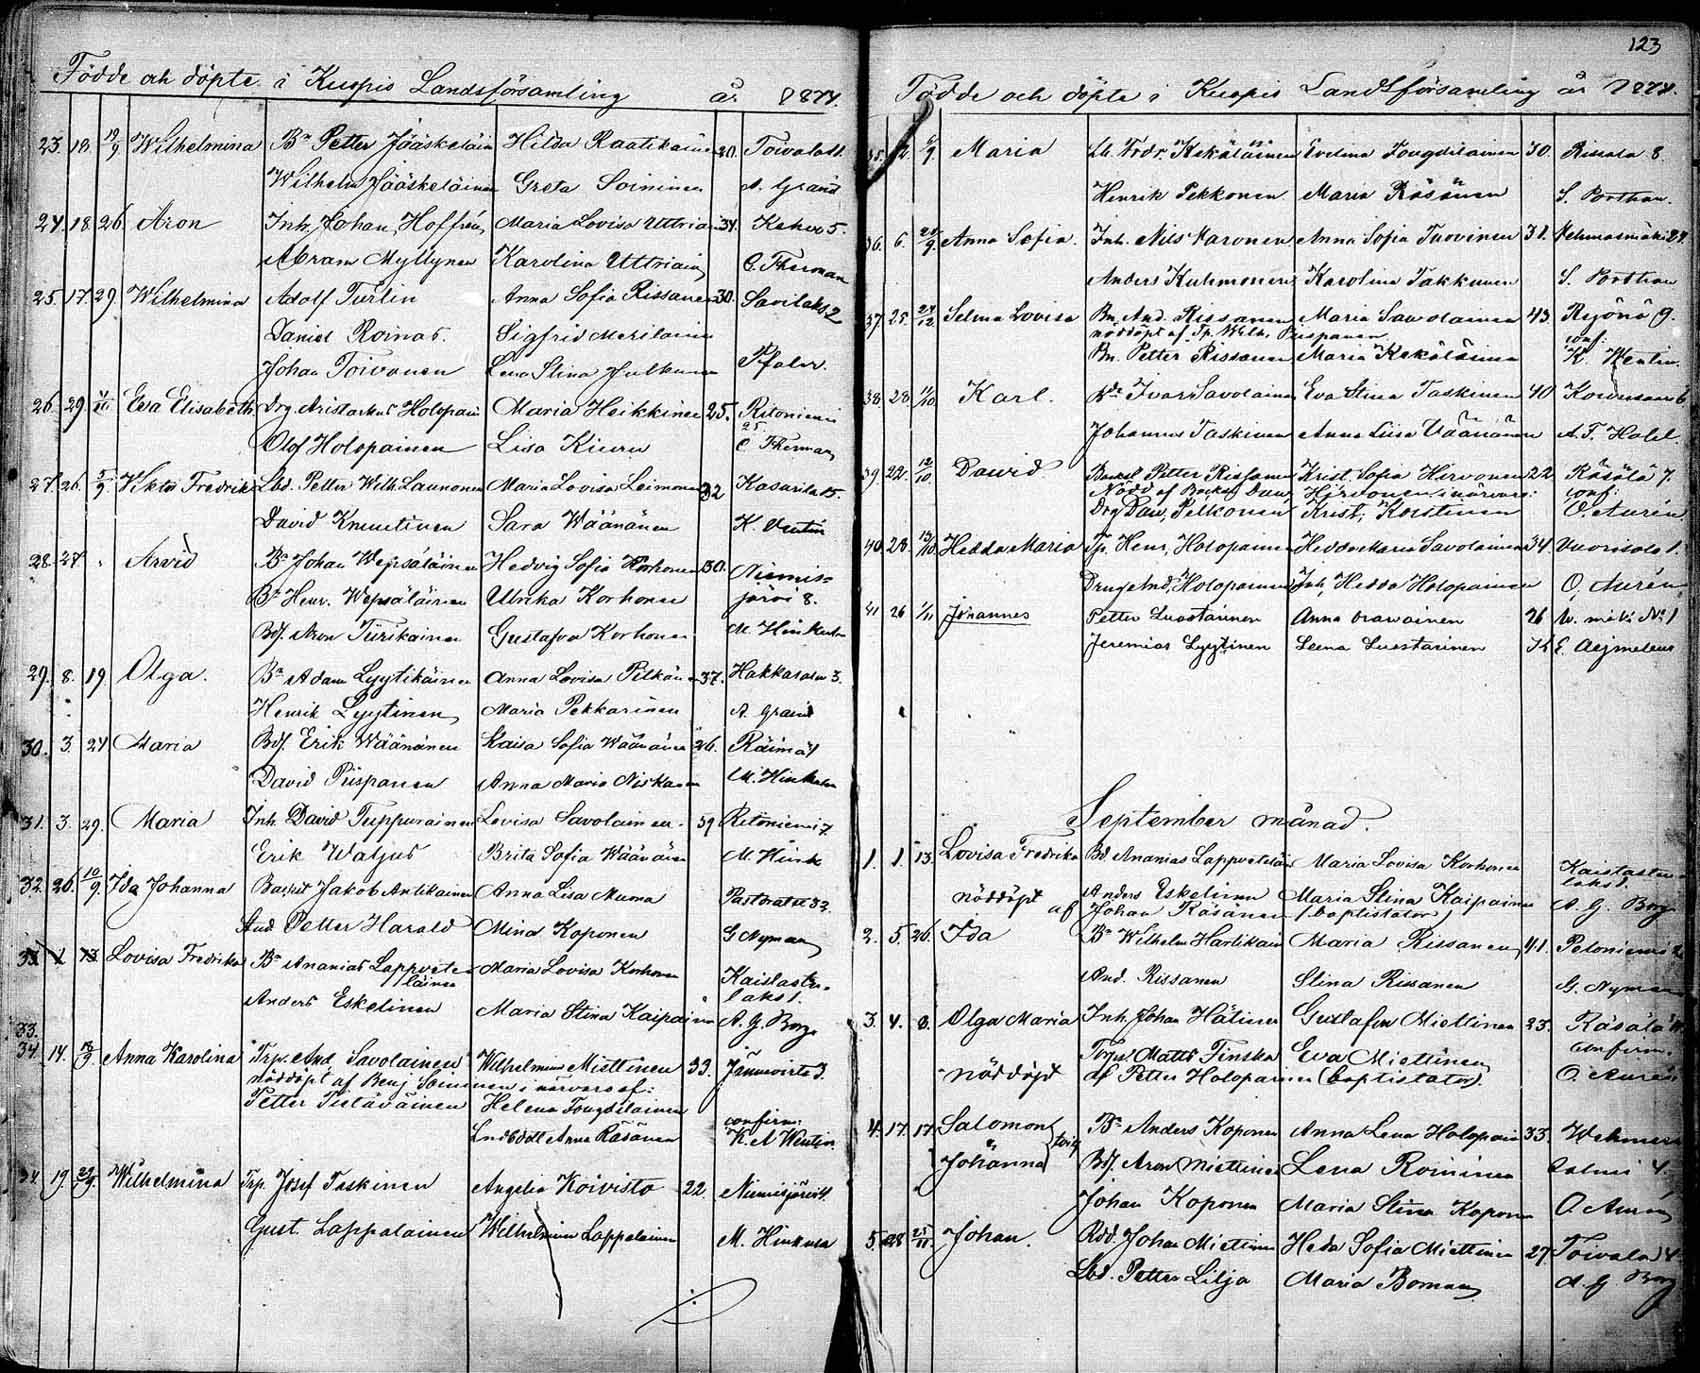 Födde och döpte i Kuopio Landsförsamling år 1874.
23. 18. 19/9 Wilhelmina Bn Petter Jääskeläin Hilda Raatikainen 20. Toivala
Wilhelm Jääskeläinen Greta Soininen A. Granit
24. 18. 26 Aron Inh. Johan Hoffrén Maria Lovisa Uttriain 34. Kehvo 5.
Abram Myllynen Karolina Uttriain C. Therman
25. 17. 29 Wilhelmina Adolf Turlin Anna Sofia Rissanen 30. Savilaks 2
Daniel Roinas. Sigfrid Merilainen
Johan Toivanen Lena Stina Julkunen Pfaler.
26. 29. Eva Elisabeth Drg. Aristarkus Holopain Maria Heikkinen 25. Ritoniemi
25.
Olof Holopainen Lisa Kiuru C. Therman
27. 26. 5/9 Viktor Fredrik Lbd. Petter Wilh Launonen Maria Lovisa Leimonen 32 Kasurila 15.
David Knuutinen Sara Wäänänen K.
28. 27 Arvid Bn Johan Wepsäläinen Hedvig Sofia Korhonen 30. Niemis=
Bn Henr. Wepsäläinen Ulrika Korhonen järvi 8.
Bdf. Aron Tiirikainen Gustafva Korhonen M. Hinkula
29. 8. 19 Olga. Bn Adam Lyytikäinen Anna Lovisa Pitkänen 37. Hakkarala 3.
Henrik Lyytinen Maria Pekkarinen A. Granit
30. 3. 27 Maria Bdf. Erik Wäänänen Kaisa Sofia Wäänänen 26. Räimä 1
David Piispanen Anna Maria Niskanen M. Hinkula
31. 3. 29. Maria Inh. David Tuppurainen Lovisa Savolainen. 39 Ritoniemi 7
Erik Watjus Brita Sofia Wäänänen M. Hink
32. 26. 10/9. Ida Johanna Backst Jakob Antikainen Anna Lisa Muma Pastoratet 32.
And Petter Harald Mina Koponen G Nyman
33. 1 13 Lovisa Fredrika Bn Ananias Lappvete- Maria Lovisa Korhonen Kaislastu-
läinen laks 1.
Anders Eskelinen Maria Stina Kaipainen A. G. Borg
33.
34 14. 18/9. Anna Karolina Trp. And Savolainen Wilhelmina Miettinen 33. Jännevirta 3.
nöddöpt af Benj Soininen i närvaro af:
Petter Tistäväinen Helena Fougdilainen confirm:
Lndbddt Anna Räsänen K. A Wentin.
34. 19. 29/9. Wilhelmina Trp. Josef Taskinen Angelia Koivisto 22. Niemisjärvi 4.
Gust. Lappalainen Wilhelmina Lappalainen M. Hinkula
123
Födde och döpte i Kuopio Landsförsamling år 1874.
35. 2. /9. Maria Lb. Frdr. Kekäläinen Evelina Fougdilainen 30. Rissala 8
Henrik Pekkonen Maria Räsänen S. Porthan.
36. 6. 20/9. Anna Sofia. Inh. Nils Karonen Anna Sofia Tuovinen 31. Kehvasmäki 24
Anders Kuhmonen Karolina Takkunen S. Porthan
37. 25. 27/12. Selma Lovisa Bn. And. Rissanen Maria Sawolainen 43. Ryönä 9.
nöddöpt af Tp. Wilh. Piispanen conf:
Bn. Petter Rissanen Maria Kekäläinen K. Wentin.
38. 28. 11/10 Karl. Ivar Savolainen Eva Stina Taskinen 40 Kovonsaari 6
Johannes Taskinen Anna Liisa Väänänen A. F. Holst.
39. 22. 12/10. David Backst Petter Rissanen Krist. Sofia Hirvonen 22 Räsälä 7.
Nödd af Backst. Dav. Hirvonen i närvaro: conf:
Drg Dav. Pelkonen Krist. Korstinen O. Aurén
40. 28. 19/10. Hedda Maria Tp. Henr. Holopainen Hedda Maria Savolainen 34. Vuorisalo 1.
Dreng And. Holopainen Inh. Hedda Holopainen O. Aurén
41 26 1/11 Johannes Petter Luostarinen Anna 26 W. mäki No 1
Jeremias Lyytinen Leena Luostarinen E. Aejmelaeus
September månad.
1. 1. 13. Lovisa Fredrika Bd Ananias Lappvetelän Maria Lovisa Korhonen Kaislastu-
laks 1.
nöddöpt Anders Eskelinen Maria Stina Kaipainen A. G. Borg
af Johan Räsänen (baptistator)
2. 5. 26. Ida Bn Wilhelm Hartikain Maria Rissanen 41. Pelonniemi 2
And. Rissanen Stina Rissanen G. Nyman
3. 4. 8. Olga Maria Inh. Johan Hätinen Gustafva Miettinen 23. Räsälä
Torp. Matts Finska Eva Miettinen confirm.
nöddöpt af Petter Holopainen (baptistator). O. Aurén
4. 17. 17 Salomon Bn Anders Koponen Anna Lena Holopain 33. Wehmer-
& tvig
Johanna Bdf. Aron Miettinen Lena Roininen salmi 4.
Johan Koponen Maria Stina Koponen O Aurén
5. 28 25/11. Johan. Rdd. Johan Miettinen Heda Sofia Miettinen 27. Toivala 4
Lbd. Petter Lilja Maria Boman A. G Borg